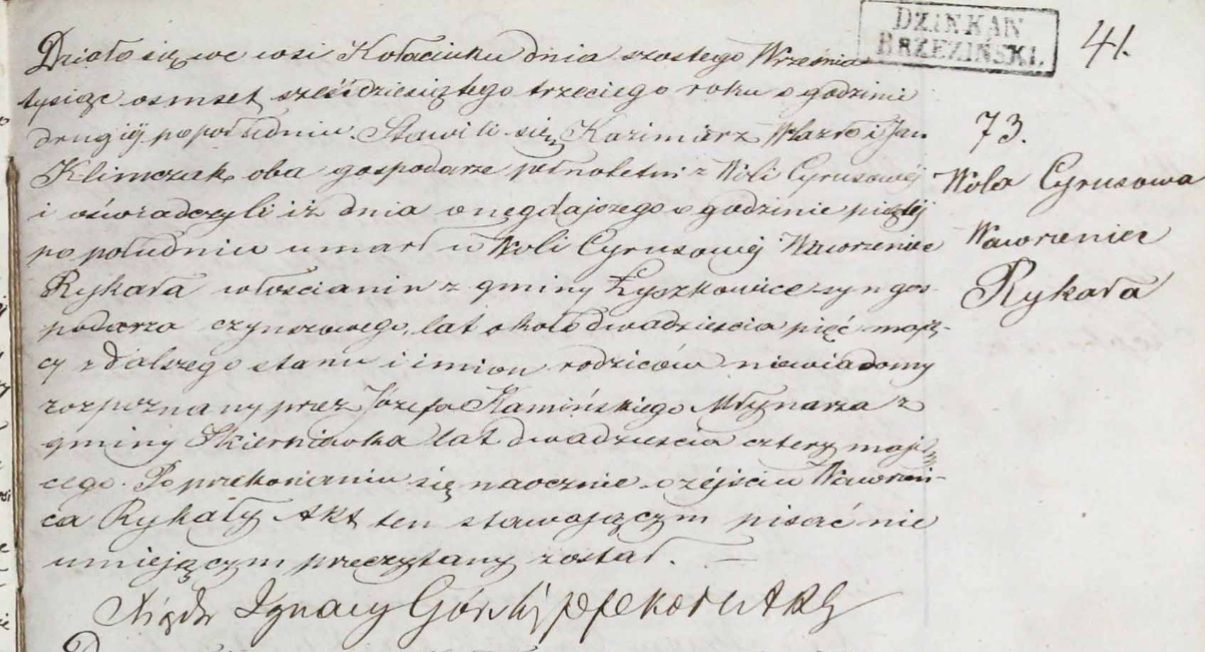 DZIEKAN
BRZEZIŃSKI.
41.
Działo się we wsi Kołacinku dnia szostego Września
tysiąc osmset sześćdziesiątego trzeciego roku o godzinie
drugiéj popołudniu. Stawili się, Kazimierz Wlazło i Jan
Klimczak, oba gospodarze pełnoletni z Woli Cyrusowéj
i oświadczyli iż dnia onegdajszego o godzinie piątéj
po południu umarł w Woli Cyrusowéj Wawrzeniec
Rykała włoscianin z gminy Łyszkowice syn gos-
podarza czynszowego, lat około dwadzieścia pięć mają-
cy z dalszego stanu i imion rodziców niewiadomy
rozpoznany przez Józefa Kamińskiego Młynarza z
gminy Skierniewka lat dwadzieścia cztery mają-
cego. Po przekonaniu się naocznie o zejściu Wawrzeń-
ca Rykały Akt ten stawającym pisać nie
umiejącym przeczytany został.
Xiądz Ignacy Górski
73.
Wola Cyrusowa
Wawrzeniec
Rykała